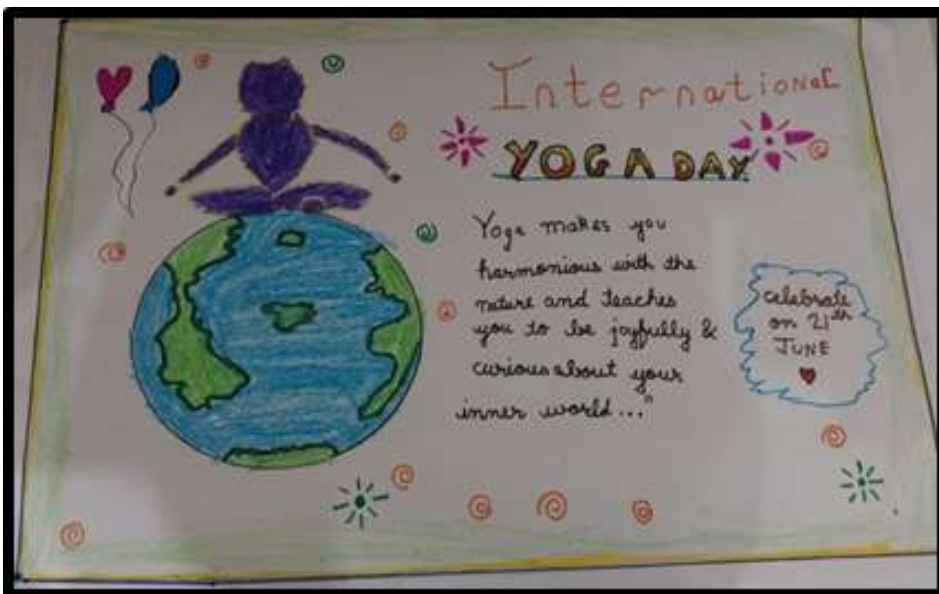 International
YOGA DAY
Yoga makes you
harmonious with the
nature and teaches
you to be joyfully &
curious about your
inner world..."
celebrate
on 21th
JUNE